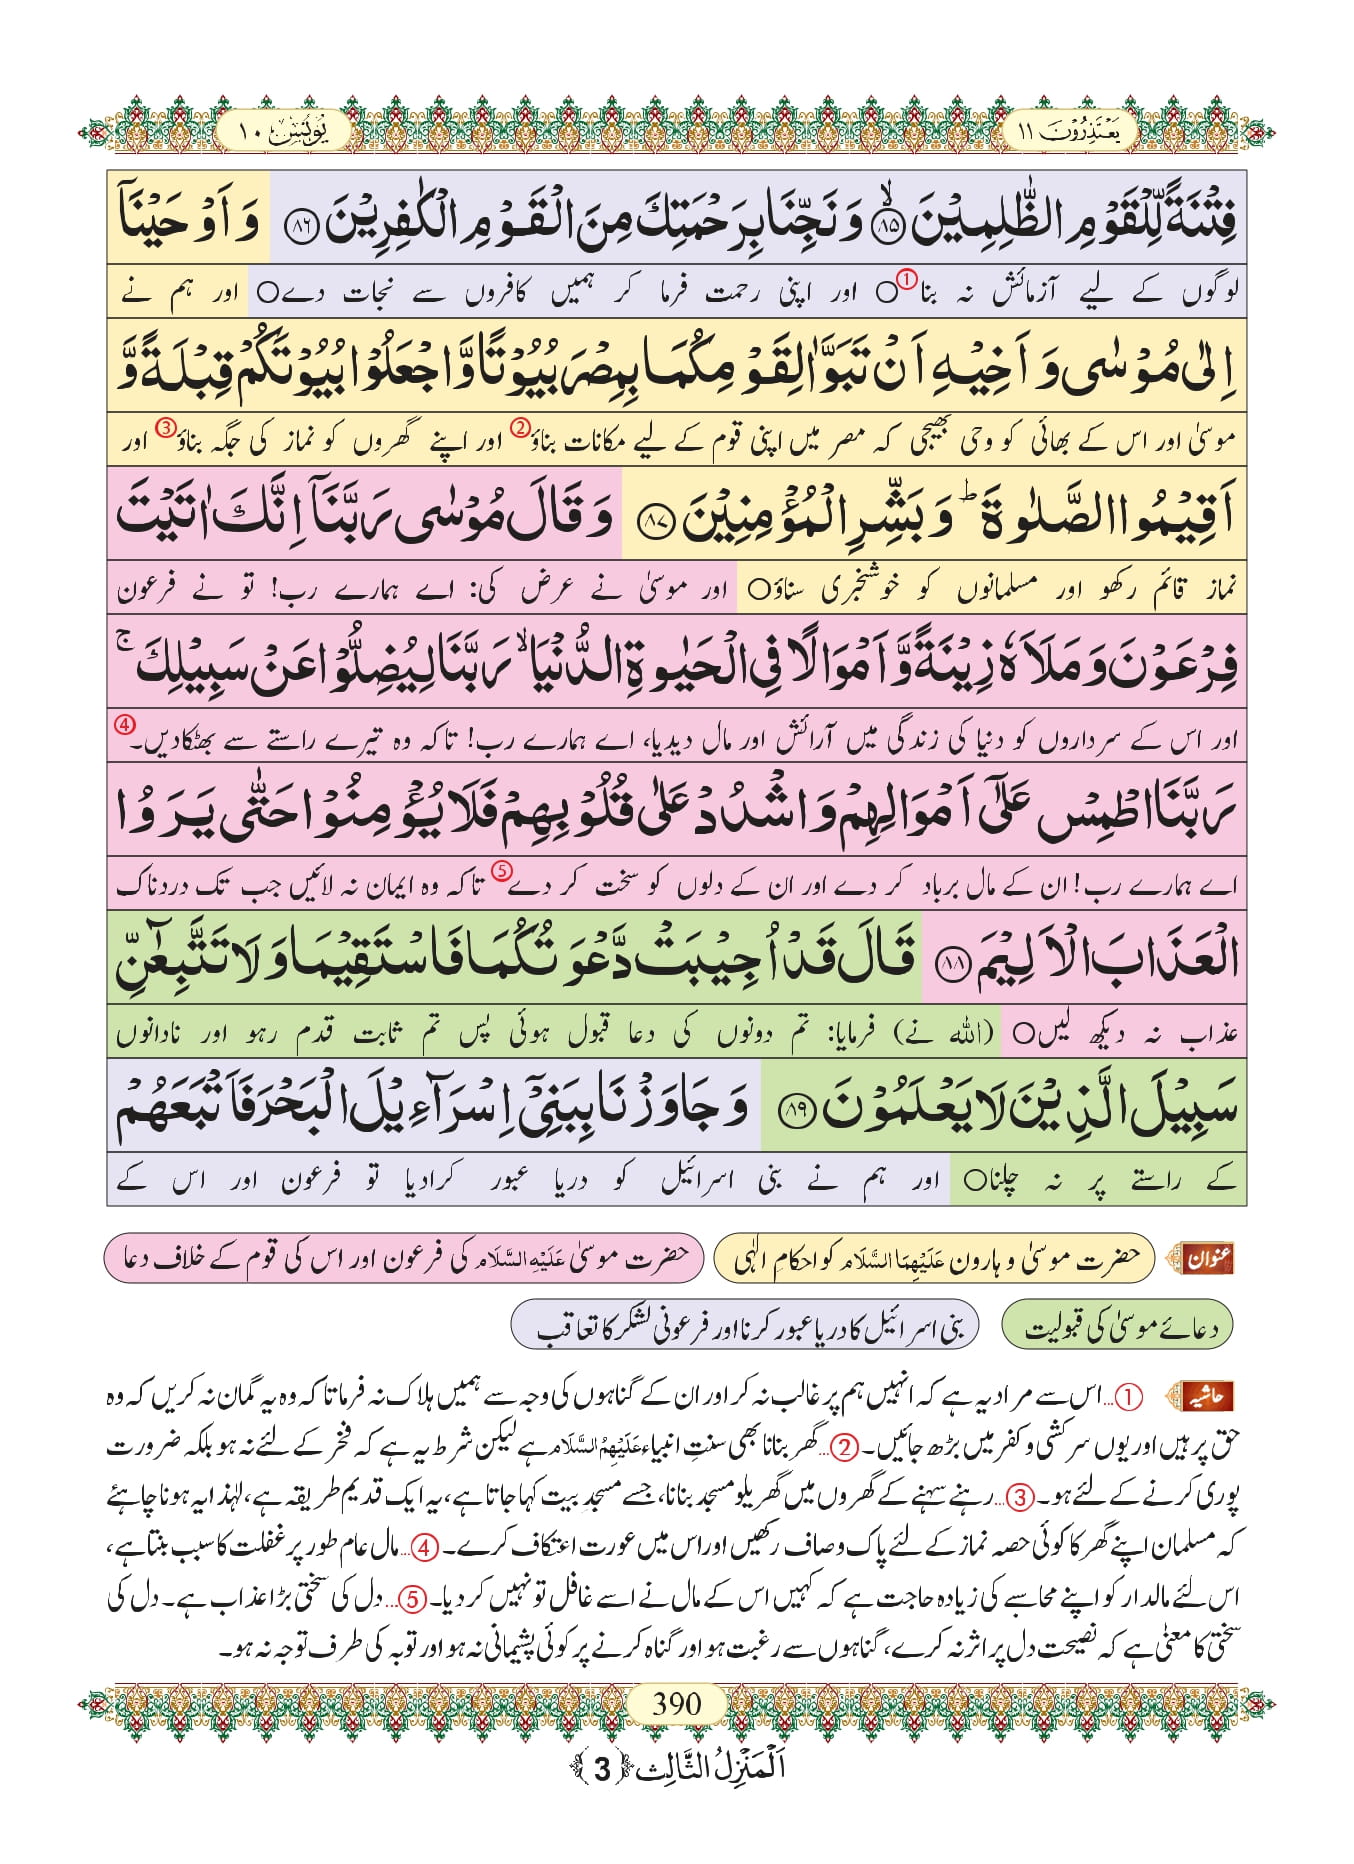 یَعْتَذِرُوْنَ ۱۱
یُوْنُس ۱۰
فِتْنَةً لِّلْقَوْمِ الظّٰلِمِیْنَۙ(۸۵) وَ نَجِّنَا بِرَحْمَتِكَ مِنَ الْقَوْمِ الْكٰفِرِیْنَ(۸۶) وَ اَوْحَیْنَاۤ
لوگوں کے لیے آزمائش نہ بنا①○ اور اپنی رحمت فرما کر ہمیں کافروں سے نجات دے○ اور ہم نے
اِلٰى مُوْسٰى وَ اَخِیْهِ اَنْ تَبَوَّاٰ لِقَوْمِكُمَا بِمِصْرَ بُیُوْتًا وَّ اجْعَلُوْا بُیُوْتَكُمْ قِبْلَةً وَّ
موسیٰ اور اس کے بھائی کو وحی بھیجی کہ مصر میں اپنی قوم کے لیے مکانات بناؤ② اور اپنے گھروں کو نماز کی جگہ بناؤ③ اور
اَقِیْمُوا الصَّلٰوةَؕ وَ بَشِّرِ الْمُؤْمِنِیْنَ(۸۷) وَ قَالَ مُوْسٰى رَبَّنَاۤ اِنَّكَ اٰتَیْتَ
نماز قائم رکھو اور مسلمانوں کو خوشخبری سناؤ○ اور موسیٰ نے عرض کی: اے ہمارے رب! تو نے فرعون
فِرْعَوْنَ وَ مَلَاَهٗ زِیْنَةً وَّ اَمْوَالًا فِی الْحَیٰوةِ الدُّنْیَاۙ رَبَّنَا لِیُضِلُّوْا عَنْ سَبِیْلِكَۚ
اور اس کے سرداروں کو دنیا کی زندگی میں آرائش اور مال دیدیا، اے ہمارے رب! تاکہ وہ تیرے راستے سے بھٹکادیں۔④
رَبَّنَا اطْمِسْ عَلٰۤى اَمْوَالِهِمْ وَ اشْدُدْ عَلٰى قُلُوْبِهِمْ فَلَا یُؤْمِنُوْا حَتّٰى یَرَوُا
اے ہمارے رب! ان کے مال برباد کر دے اور ان کے دلوں کو سخت کر دے⑤ تاکہ وہ ایمان نہ لائیں جب تک دردناک
الْعَذَابَ الْاَلِیْمَ(۸۸) قَالَ قَدْ اُجِیْبَتْ دَّعْوَتُكُمَا فَاسْتَقِیْمَا وَ لَا تَتَّبِعٰٓنِّ
عذاب نہ دیکھ لیں○ (اللہ نے) فرمایا: تم دونوں کی دعا قبول ہوئی پس تم ثابت قدم رہو اور نادانوں
سَبِیْلَ الَّذِیْنَ لَا یَعْلَمُوْنَ(۸۹) وَ جَاوَزْنَا بِبَنِیْۤ اِسْرَآءِیْلَ الْبَحْرَ فَاَتْبَعَهُمْ
کے راستے پر نہ چلنا○ اور ہم نے بنی اسرائیل کو دریا عبور کرادیا تو فرعون اور اس کے
عنوان حضرت موسیٰ و ہارون عَلَيْهِمَا السَّلَام کو احکامِ الٰہی حضرت موسیٰ عَلَيْهِ السَّلَام کی فرعون اور اس کی قوم کے خلاف دعا
دعائے موسیٰ کی قبولیت بنی اسرائیل کا دریا عبور کرنا اور فرعونی لشکر کا تعاقب
حاشیہ ①…اس سے مراد یہ ہے کہ انہیں ہم پر غالب نہ کر اور ان کے گناہوں کی وجہ سے ہمیں ہلاک نہ فرما تاکہ وہ یہ گمان نہ کریں کہ وہ
حق پر ہیں اور یوں سرکشی و کفر میں بڑھ جائیں۔ ②…گھر بنانا بھی سنتِ انبیاء عَلَيْهِمُ السَّلَام ہے لیکن شرط یہ ہے کہ فخر کے لئے نہ ہو بلکہ ضرورت
پوری کرنے کے لئے ہو۔ ③…رہنے سہنے کے گھروں میں گھریلو مسجد بنانا، جسے مسجدِ بیت کہا جاتا ہے، یہ ایک قدیم طریقہ ہے، لہٰذا یہ ہونا چاہئے
کہ مسلمان اپنے گھر کا کوئی حصہ نماز کے لئے پاک و صاف رکھیں اور اس میں عورت اعتکاف کرے۔ ④…مال عام طور پر غفلت کا سبب بنتا ہے،
اس لئے مالدار کو اپنے محاسبے کی زیادہ حاجت ہے کہ کہیں اس کے مال نے اسے غافل تو نہیں کر دیا۔ ⑤…دل کی سختی بڑا عذاب ہے۔ دل کی
سختی کا معنیٰ ہے کہ نصیحت دل پر اثر نہ کرے، گناہوں سے رغبت ہو اور گناہ کرنے پر کوئی پشیمانی نہ ہو اور توبہ کی طرف توجہ نہ ہو۔
390
اَلْمَنْزِلُ الثَّالِث ﴿3﴾